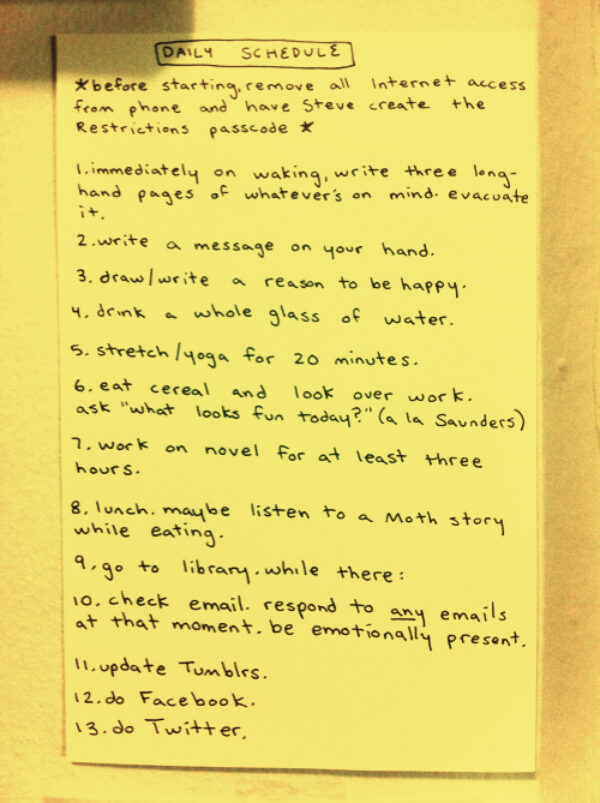 DAILY SCHEDULE
*before starting, remove all Internet access
from phone and have Steve create the
Restrictions passcode *
1. immediately on waking, write three long-
hand pages of whatever's on mind. evacuate
it.
2. write a message on your hand.
3. draw/write a reason to be happy.
4. drink a whole glass of water.
5. stretch/yoga for 20 minutes.
6. eat cereal and look over work.
ask "what looks fun today?" (a la Saunders)
7. work on novel for at least three
hours.
8. lunch. maybe listen to a Moth story
while eating.
9. go to library. while there:
10. check email. respond to any emails
at that moment. be emotionally present.
11. update Tumblrs.
12. do Facebook.
13. do Twitter.